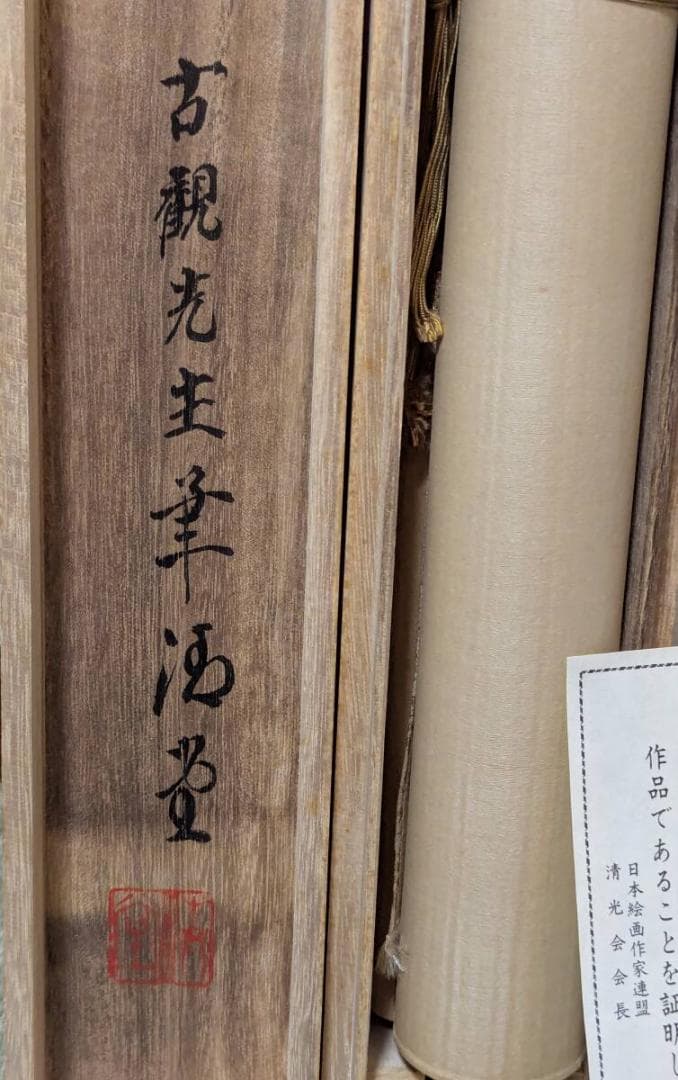 古觀先生筆堂
作品であることを証明し
日本絵画作家連盟
清光会会長